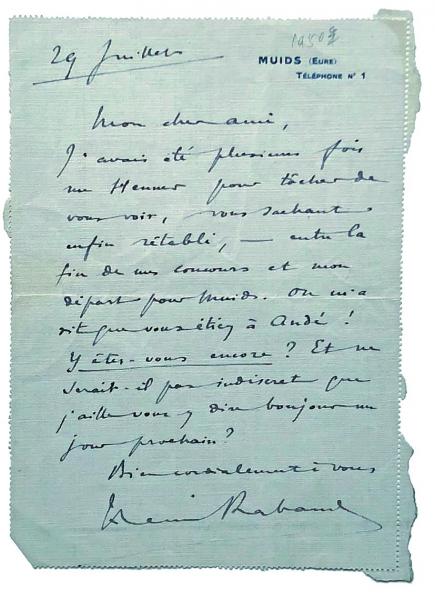 29 Juillet
MUIDS (EURE)
TÉLÉPHONE N° 1
Mon cher ami,
J'avais été plusieurs fois
rue Henner pour tâcher de
vous voir, vous sachant
enfin rétabli, — entre la
fin de nos concours et mon
départ pour Muids. On m'a
dit que vous étiez à Andé !
Y êtes-vous encore ? Et ne
serait-il pas indiscret que
j'aille vous y dire bonjour un
jour prochain ?
Bien cordialement à vous
Henri Rabaud